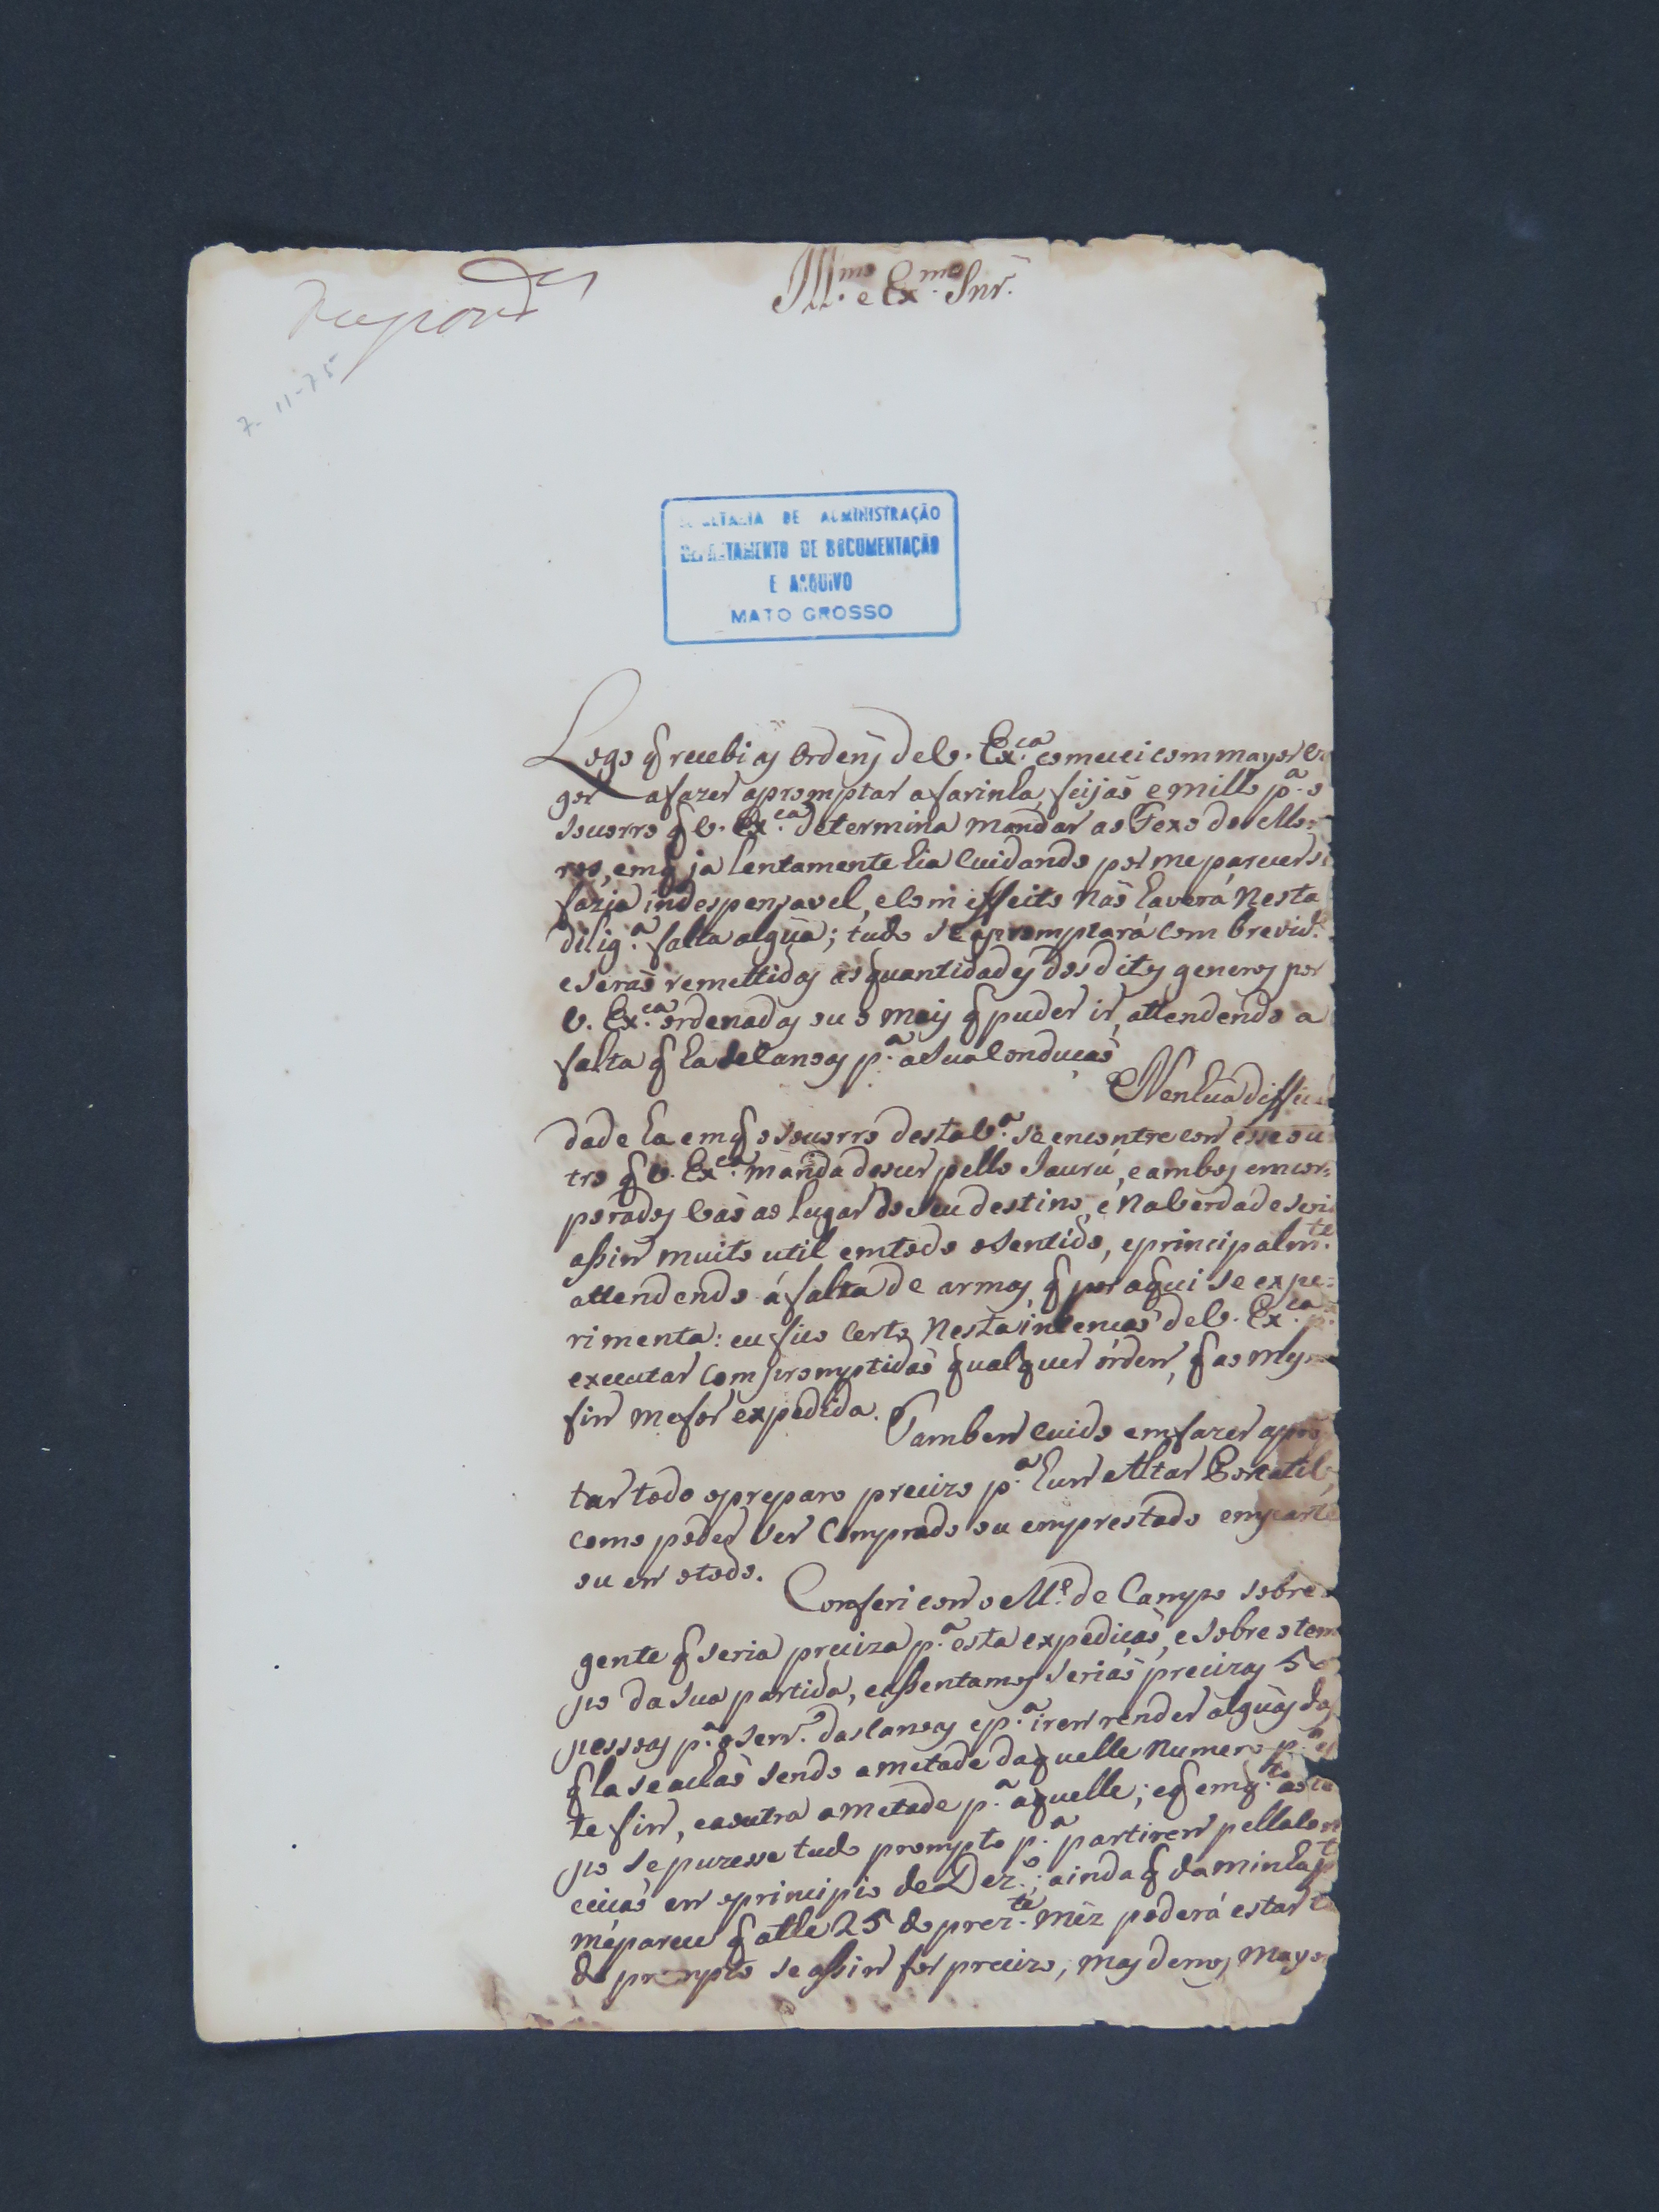 Respond.^da
Ill.^mo e Ex.^mo Snr.
7-11-75
SECRETARIA DE ADMINISTRAÇÃO
DEPARTAMENTO DE DOCUMENTAÇÃO
E ARQUIVO
MATO GROSSO
Logo q recebi as ordens de V. Ex.^ca comecei com mayor vi
gor a fazer apromptar a farinha, feijaõ e milho p.^a o
socorro q V. Ex.^ca determina mandar ao Fexo dos Mor-
ros, em q ja lentamente hia cuidando por me parecer se
fazia indespensavel, e com effeito naõ haverá nesta
dilig.^a falta algũa; tudo se apromptará com brevid.^e
e seraõ remettidas as quantidades dos ditos generos por
V. Ex.^ca ordenadas ou o mais q puder ir, attendendo a
falta q ha de canoas p.^a a sua conducaõ
Nenhũa difficul
dade ha em q o socorro desta V.^a se encontre com esse ou
tro q V. Ex.^ca manda descer pello Jaurú, e ambos emcor-
porados vaõ ao lugar do seu destino, e na verdade seria
assim muito util em todo o sentido, e principalm.^te
attendendo á falta de armas q por aqui se expe-
rimenta: eu fico certo nesta intencaõ de V. Ex.^ca p.^a
executar com promptidaõ qualquer órdem, q ao mesmo
fim me for expedida.
Tambem cuido em fazer apro
tar todo o preparo precizo p.^a hum Altar Portatil,
como poder ser comprado ou emprestado em parte
ou em o todo.
Conferi com o M.^e de Campo sobre a
gente q seria preciza p.^a esta expedicaõ, e sobre o tem
po da sua partida, e assentamos seriaõ precizas 50
pessoas p.^a o serv.^o das canoas e p.^a irem render algũas das
q la se achaõ sendo a metade daquelle numero p.^a es
te fim, e a outra ametade p.^a aquelle; e q emq.^to ao tem
po se puzesse tudo prompto p.^a partirem pella
em o principio de Dez.^o; ainda q da minha p.^te
me parece q athe 25 do prez.^te mêz poderá estar tu
do prompto se assim for precizo, mas demos mayor